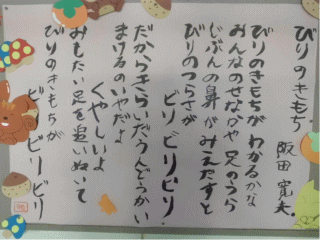 びりのきもち
阪田 寛夫
びりのきもちが わかるかな
みんなのせなかや 足のうら
じぶんの鼻が みえだすと
びりのつらさが
ビリ ビリ ビリ
だからきらいだ うんどうかい
まけるのいやだよ
くやしいよ
おもたい足を 追いぬいて
びりのきもちが
ビリ ビリ ビリ